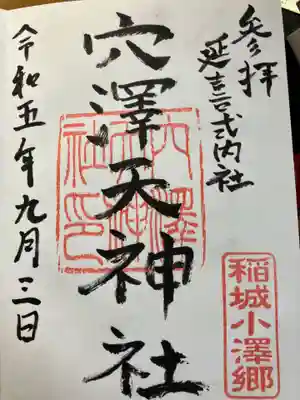 参拝
延喜式内社
穴澤天神社
穴澤天神社印
稲城小澤郷
令和五年九月三日